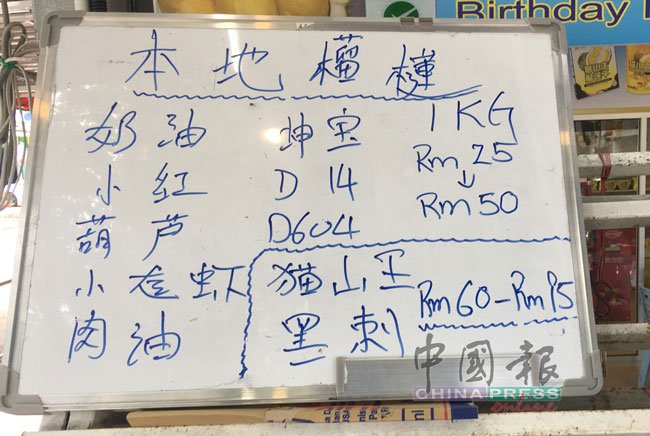 Birthday
本地榴梿
奶油 坤宝 1KG
小红 D14 Rm25
↓
葫芦 D604 Rm50
小龙虾 猫山王 Rm60-Rm95
肉油 黑刺
中國報
CHINA PRESS
online